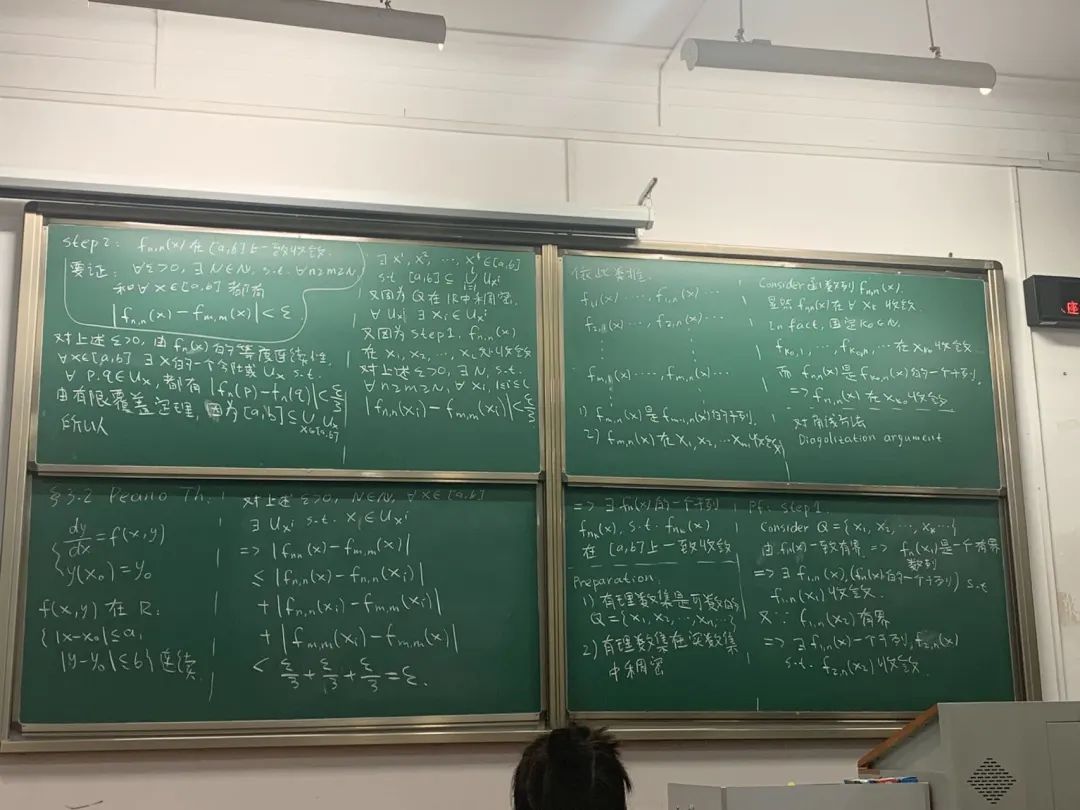 step2: f_{n,n}(x) 在[a,b]上一致收敛.
要证: ∀ε>0, ∃N∈ℕ, s.t. ∀n≥m≥N,
和∀x∈[a,b] 都有
|f_{n,n}(x) - f_{m,m}(x)| < ε.
对上述ε>0, 由f_n(x)的等度连续性
∀x∈[a,b] ∃x的一个 U_x s.t.
∀p,q∈U_x, 都有 |f_n(p) - f_n(q)| < ε/3
由有限覆盖定理, 因为[a,b]⊆∪_{x∈[a,b]} U_x
所以
∃ x^1, x^2, …, x^L∈[a,b]
s.t. [a,b] ⊆ ∪_{i=1}^{L} U_{x^i}
又因为Q在ℝ中稠密.
∀U_{x^i} ∃x_i∈U_{x^i}
又因为step1, f_{n,n}(x)
在x_1, x_2, …, x_L处收敛
对上述ε>0, ∃N, s.t.
∀n≥m≥N, ∀x_i, 1≤i≤L
|f_{n,n}(x_i) - f_{m,m}(x_i)| < ε/3
依此类推.
f_{1,1}(x) ····, f_{1,n}(x) ···
f_{2,1}(x) ····, f_{2,n}(x) ···
f_{m,1}(x) ····, f_{m,n}(x) ···
1) f_{m,n}(x)是f_{m-1,n}(x)的子列.
2) f_{m,n}(x)在x_1, x_2, …x_m收敛
Consider 函数列f_{n,n}(x).
显然f_{n,n}(x)在∀x_k 收敛.
In fact, 固定k_0∈ℕ.
f_{k_0,1}, …, f_{k_0,n}, …在x_{k_0}收敛
而f_{n,n}(x)是f_{k_0,n}(x)的一个子列.
=> f_{n,n}(x)在x_{k_0}收敛
对角线方法
Diagolization argument
§3.2 Peano Th.
{ dy/dx = f(x,y)
y(x_0) = y_0
f(x,y) 在R:
{|x-x_0|≤a,
|y-y_0|≤b} 连续.
对上述ε>0, N∈ℕ, ∀x∈[a,b]
∃U_{x^i} s.t. x∈U_{x^i}
=> |f_{n,n}(x) - f_{m,m}(x)|
≤ |f_{n,n}(x) - f_{n,n}(x_i)|
+ |f_{n,n}(x_i) - f_{m,m}(x_i)|
+ |f_{m,m}(x_i) - f_{m,m}(x)|
< ε/3 + ε/3 + ε/3 = ε.
=> ∃f_n(x)的一个子列
f_{n_k}(x), s.t. f_{n_k}(x)
在[a,b]上一致收敛
Preparation:
1) 有理数集是可数的
Q={x_1, x_2, …, x_n, …}
2) 有理数集在实数集
中稠密
Pf: step1.
Consider Q={x_1, x_2, …, x_n, …}
由f_n(x)一致有界 => f_n(x_1)是一个有界
数列
=> ∃f_{1,n}(x), (f_n(x)的一个子列) s.t
f_{1,n}(x_1)收敛.
又∵ f_{1,n}(x_2)有界
=> ∃f_{1,n}(x)一个子列, f_{2,n}(x)
s.t. f_{2,n}(x_2)收敛.